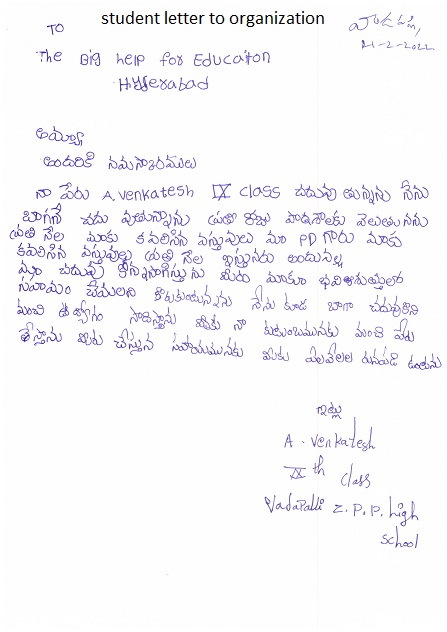 student letter to organization
వాడపల్లి,
21-2-2022
TO
The Big help for Educaiton
Hyderabad
అమ్మా
అందరికి నమస్కారములు
నా పేరు A. Venkatesh IX class చదువు తున్నను నేను
బాగానే చదు వుతున్నాను ప్రతి రోజు పాఠశాలకు వెలుతునను
ప్రతి నేల మాకు కవలిసిన వస్తువులు మా PD గారు మాకు
కవలిసిన వస్తువుల్లు ప్రతి నేల ఇస్తునరు అందువల్ల
చదువు మీరు మాకూ భవిష్యతులో
సహయం చేయలని కొరుకుంటున్నను నేను కూడ బాగా చదువుకొని
మంచి ఉద్యోగం సాదిస్తాను మీకు నా కుటుంబమునకు మంచి పేరు
తేస్తాను మీరు చేస్తున సహయమునకు మీకు రునపడి ఉంటను
ఇట్లు
A. Venkatesh
IX th class
Vadapalli Z.P.P. high
school